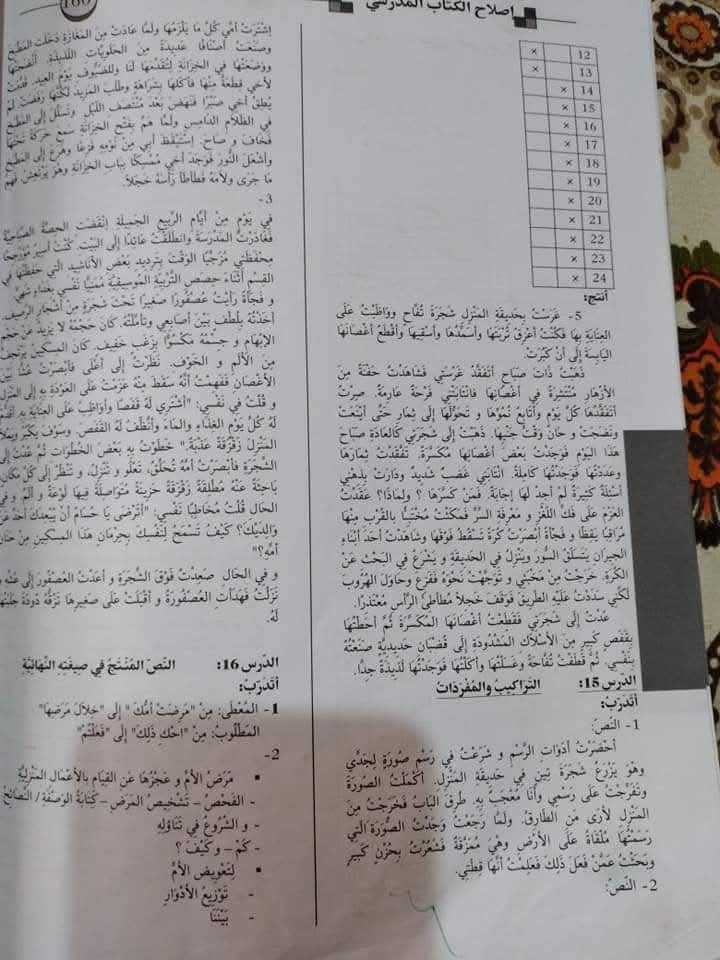 160
اصلاح الكتاب المدرسي
12 ×
13 ×
14 ×
15 ×
16 ×
17 ×
18 ×
19 ×
20 ×
21 ×
22 ×
23 ×
24 ×
أنتج:
5- غَرَسْتُ بِحَدِيقَةِ المَنْزِلِ شَجَرَةَ تُفَّاحٍ وَوَاظَبْتُ عَلَى
العِنَايَةِ بِهَا فَكُنْتُ أَعْزِقُ تُرْبَتَهَا وَأُسَمِّدُهَا وَأَسْقِيهَا وَأَقْطَعُ أَغْصَانَهَا
اليَابِسَةَ إِلَى أَنْ كَبُرَتْ.
ذَهَبْتُ ذَاتَ صَبَاحٍ أَتَفَقَّدُ غَرْسَتِي فَشَاهَدْتُ حَفْنَةً مِنَ
الأَزْهَارِ مُنْتَشِرَةً فِي أَغْصَانِهَا فَانْتَابَتْنِي فَرْحَةٌ عَارِمَةٌ. صِرْتُ
أَتَفَقَّدُهَا كُلَّ يَوْمٍ وَأُتَابِعُ نُمُوَّهَا وَ تَحَوُّلَهَا إِلَى ثِمَارٍ حَتَّى أَيْنَعَتْ
وَنَضِجَتْ وَ حَانَ وَقْتُ جَنْيِهَا. ذَهَبْتُ إِلَى شَجَرَتِي كَالعَادَةِ صَبَاحَ
هَذَا اليَوْمِ فَوَجَدْتُ بَعْضَ أَغْصَانِهَا مُكَسَّرَةً. تَفَقَّدْتُ ثِمَارَهَا
وَعَدَدْتُهَا فَوَجَدْتُهَا كَامِلَةً. انْتَابَنِي غَضَبٌ شَدِيدٌ وَدَارَتْ بِذِهْنِي
أَسْئِلَةٌ كَثِيرَةٌ لَمْ أَجِدْ لَهَا إِجَابَةً. فَمَنْ كَسَّرَهَا ؟ وَلِمَاذَا؟ عَقَدْتُ
العَزْمَ عَلَى فَكِّ اللُّغْزِ وَ مَعْرِفَةِ السِّرِّ فَمَكَثْتُ مُخْتَبِئًا بِالقُرْبِ مِنْهَا
مُرَاقِبًا يَقِظًا وَ فَجْأَةً أَبْصَرْتُ كُرَةً تَسْقُطُ فَوْقَهَا وَشَاهَدْتُ أَحَدَ أَبْنَاءِ
الجِيرَانِ يَتَسَلَّقُ السُّورَ وَيَنْزِلُ فِي الحَدِيقَةِ وَ يَشْرَعُ فِي البَحْثِ عَنْ
الكُرَةِ. خَرَجْتُ مِنْ مَخْبَئِي وَ تَوَجَّهْتُ نَحْوَهُ فَفَزِعَ وَحَاوَلَ الهُرُوبَ
لَكِنِّي سَدَدْتُ عَلَيْهِ الطَّرِيقَ فَوَقَفَ خَجِلاً مُطَأْطِئَ الرَّأْسِ مُعْتَذِرًا.
عُدْتُ إِلَى شَجَرَتِي فَقَطَعْتُ أَغْصَانَهَا المُكَسَّرَةَ ثُمَّ أَحَطْتُهَا
بِقَفَصٍ كَبِيرٍ مِنَ الأَسْلَاكِ المَشْدُودَةِ إِلَى قُضْبَانٍ حَدِيدِيَّةٍ صَنَعْتُهُ
بِنَفْسِي. ثُمَّ قَطَفْتُ تُفَّاحَةً وَغَسَلْتُهَا وَأَكَلْتُهَا فَوَجَدْتُهَا لَذِيذَةً جِدًّا.
الدرس 15: التراكيب والمفردات
أتدرب:
1- النَّصّ:
أَحْضَرْتُ أَدَوَاتِ الرَّسْمِ وَ شَرَعْتُ فِي رَسْمِ صُورَةٍ لِجَدِّي
وَهُوَ يَزْرَعُ شَجَرَةَ تِينٍ فِي حَدِيقَةِ المَنْزِلِ. أَكْمَلْتُ الصُّورَةَ
وَتَفَرَّجْتُ عَلَى رَسْمِي وَأَنَا مُعْجَبٌ بِهِ. طُرِقَ البَابُ فَخَرَجْتُ مِنَ
المَنْزِلِ لأَرَى مَنِ الطَّارِقُ. وَلَمَّا رَجَعْتُ وَجَدْتُ الصُّورَةَ الَّتِي
رَسَمْتُهَا مُلْقَاةً عَلَى الأَرْضِ وَهِيَ مُمَزَّقَةٌ فَشَعَرْتُ بِحُزْنٍ كَبِيرٍ
وَبَحَثْتُ عَمَّنْ فَعَلَ ذَلِكَ فَعَلِمْتُ أَنَّهَا قِطَّتِي.
2- النَّصّ:
إِشْتَرَتْ أُمِّي كُلَّ مَا يَلْزَمُهَا وَلَمَّا عَادَتْ مِنَ المَغَازَةِ دَخَلَتِ المَطْبَخَ
وَصَنَعَتْ أَصْنَافًا عَدِيدَةً مِنَ الحَلَوِيَّاتِ اللَّذِيذَةِ. أَنْضَجَتْهَا
وَوَضَعَتْهَا فِي الخِزَانَةِ لِتُقَدِّمَهَا لَنَا وَلِلضُّيُوفِ يَوْمَ العِيدِ. قَدَّمَتْ
لأَخِي قِطْعَةً مِنْهَا فَأَكَلَهَا بِشَرَاهَةٍ وَطَلَبَ المَزِيدَ لَكِنَّهَا رَفَضَتْ. لَمْ
يُطِقْ أَخِي صَبْرًا فَنَهَضَ بَعْدَ مُنْتَصَفِ اللَّيْلِ وَتَسَلَّلَ إِلَى المَطْبَخِ
فِي الظَّلَامِ الدَّامِسِ وَلَمَّا هَمَّ بِفَتْحِ الخِزَانَةِ سَمِعَ حَرَكَةً تَحْتَهَا
فَخَافَ وَ صَاحَ. إِسْتَيْقَظَ أَبِي مِنْ نَوْمِهِ فَزِعًا وَهَرَعَ إِلَى المَطْبَخِ
وَأَشْعَلَ النُّورَ فَوَجَدَ أَخِي مُمْسِكًا بِبَابِ الخِزَانَةِ وَهُوَ يَرْتَعِشُ فَفَهِمَ
مَا جَرَى وَلَامَهُ فَطَأْطَأَ رَأْسَهُ خَجَلاً.
3-
فِي يَوْمٍ مِنْ أَيَّامِ الرَّبِيعِ الجَمِيلَةِ إِنْقَضَتِ الحِصَّةُ الصَّبَاحِيَّةُ
فَغَادَرْتُ المَدْرَسَةَ وَانْطَلَقْتُ عَائِدًا إِلَى البَيْتِ. كُنْتُ أَسِيرُ مُؤَرْجِحًا
مِحْفَظَتِي مُزَجِّيًا الوَقْتَ بِتَرْدِيدِ بَعْضِ الأَنَاشِيدِ الَّتِي حَفِظْتُهَا فِي
القِسْمِ أَثْنَاءَ حِصَصِ التَّرْبِيَةِ المُوسِيقِيَّةِ مُمَنِّيًا نَفْسِي بِغَدَاءٍ شَهِيٍّ
وَ فَجْأَةً رَأَيْتُ عُصْفُورًا صَغِيرًا تَحْتَ شَجَرَةٍ مِنْ أَشْجَارِ الرَّصِيفِ.
أَخَذْتُهُ بِلُطْفٍ بَيْنَ أَصَابِعِي وَتَأَمَّلْتُهُ. كَانَ حَجْمُهُ لَا يَزِيدُ عَنْ حَجْمِ
الإِبْهَامِ وَ جِسْمُهُ مَكْسُوًّا بِزَغَبٍ خَفِيفٍ. كَانَ المِسْكِينُ يَرْتَجِفُ
مِنَ الأَلَمِ وَ الخَوْفِ. نَظَرْتُ إِلَى أَعْلَى فَأَبْصَرْتُ عُشًّا بَيْنَ
الأَغْصَانِ فَفَهِمْتُ أَنَّهُ سَقَطَ مِنْهُ عَزَمْتُ عَلَى العَوْدَةِ بِهِ إِلَى المَنْزِلِ
وَ قُلْتُ فِي نَفْسِي: "أَشْتَرِي لَهُ قَفَصًا وَأُوَاظِبُ عَلَى العِنَايَةِ بِهِ
لَهُ كُلَّ يَوْمٍ الغِذَاءَ وَالمَاءَ وَ أُنَظِّفُ لَهُ القَفَصَ. وَسَوْفَ يَكْبُرُ وَيَمْلَأُ
المَنْزِلَ زَقْزَقَةً عَذْبَةً." خَطَوْتُ بِهِ بَعْضَ الخُطُوَاتِ ثُمَّ عُدْتُ إِلَى
الشَّجَرَةِ فَأَبْصَرْتُ أُمَّهُ تُحَلِّقُ، تَعْلُو وَ تَنْزِلُ، وَ تَنْظُرُ إِلَى كُلِّ مَكَانٍ
بَاحِثَةً عَنْهُ مُطْلِقَةً زَقْزَقَةً حَزِينَةً مُتَوَاصِلَةً فِيهَا لَوْعَةٌ وَ أَلَمٌ وَ فِي
الحَالِ قُلْتُ مُخَاطِبًا نَفْسِي: "أَتَرْضَى يَا حُسَامُ أَنْ يُبْعِدَكَ أَحَدٌ عَنْ
وَالِدَيْكَ؟ كَيْفَ تَسْمَحُ لِنَفْسِكَ بِحِرْمَانِ هَذَا المِسْكِينِ مِنْ حَنَانِ
أُمِّهِ؟"
وَ فِي الحَالِ صَعِدْتُ فَوْقَ الشَّجَرَةِ وَ أَعَدْتُ العُصْفُورَ إِلَى عُشِّهِ وَ
نَزَلْتُ فَهَدَأَتِ العُصْفُورَةُ وَ أَقْبَلَتْ عَلَى صَغِيرِهَا تَزُقُّهُ دُودَةً جَلَبَتْهَا
لَهُ.
الدرس 16: النص المنتج في صيغته النهائية
أتدرب:
1- المُعْطَى: مِنْ "مَرِضَتْ أُمُّكَ" إِلَى "خِلَالَ مَرَضِهَا"
المَطْلُوبُ: مِنْ "احْكِ ذَلِكَ" إِلَى "فَعَلْتُمْ"
2-
▪ مَرَضُ الأُمِّ وَ عَجْزُهَا عَنِ القِيَامِ بِالأَعْمَالِ المَنْزِلِيَّةِ
- الفَحْصُ – تَشْخِيصُ المَرَضِ – كِتَابَةُ الوَصْفَةِ / النَّصَائِحُ
- وَ الشُّرُوعُ فِي تَنَاوُلِهِ
- كَمْ – وَ كَيْفَ ؟
▪ لِتَعْوِيضِ الأُمِّ
- تَوْزِيعُ الأَدْوَارِ
- بَيْنَنَا